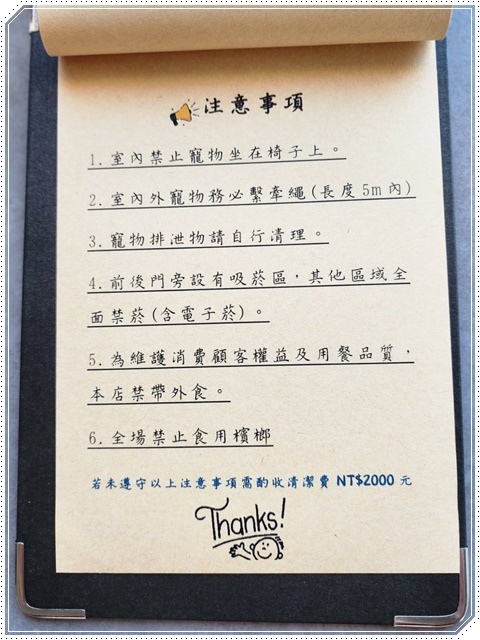 注意事項
1. 室內禁止寵物坐在椅子上。
2. 室內外寵物務必繫牽繩(長度5m內)
3. 寵物排泄物請自行清理。
4. 前後門旁設有吸菸區，其他區域全
面禁菸(含電子菸)。
5. 為維護消費顧客權益及用餐品質，
本店禁帶外食。
6. 全場禁止食用檳榔
若未遵守以上注意事項需酌收清潔費 NT$2000 元
Thanks!